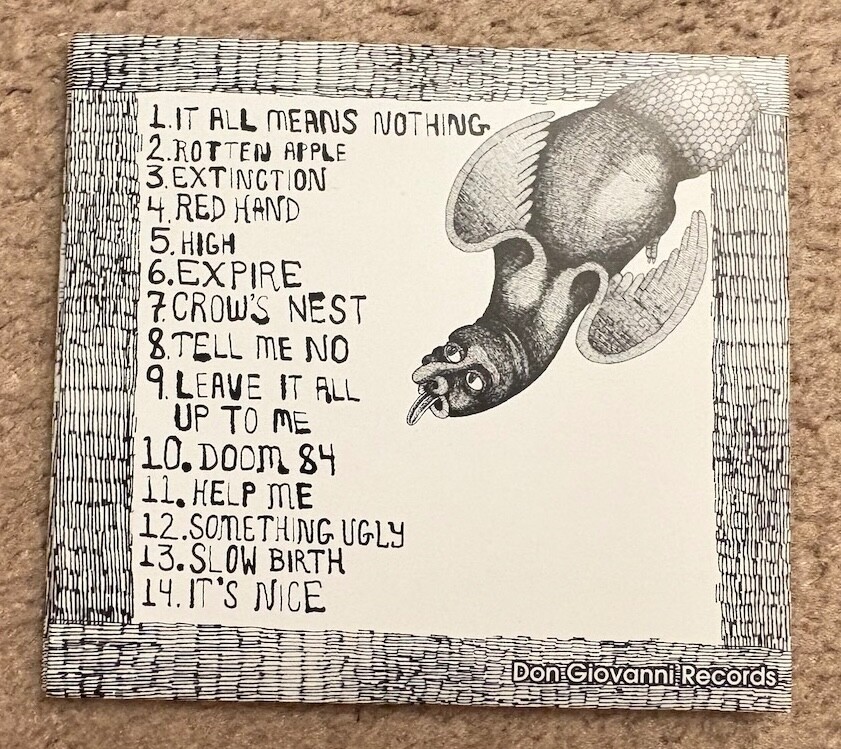 1. IT ALL MEANS NOTHING
2. ROTTEN APPLE
3. EXTINCTION
4. RED HAND
5. HIGH
6. EXPIRE
7. CROW'S NEST
8. TELL ME NO
9. LEAVE IT ALL
UP TO ME
10. DOOM 84
11. HELP ME
12. SOMETHING UGLY
13. SLOW BIRTH
14. IT'S NICE
Don Giovanni Records